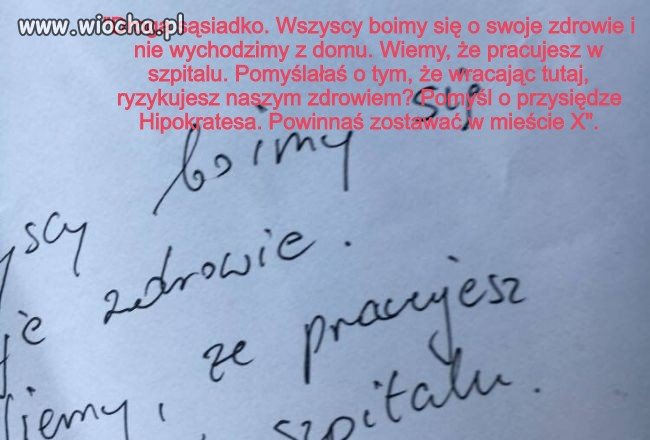 www.wiocha.pl
sąsiadko. Wszyscy boimy się o swoje zdrowie i
nie wychodzimy z domu. Wiemy, że pracujesz w
szpitalu. Pomyślałaś o tym, że wracając tutaj,
ryzykujesz naszym zdrowiem? Pomyśl o przysiędze
Hipokratesa. Powinnaś zostawać w mieście X".
boimy się
zdrowie.
że pracujesz
szpitalu.